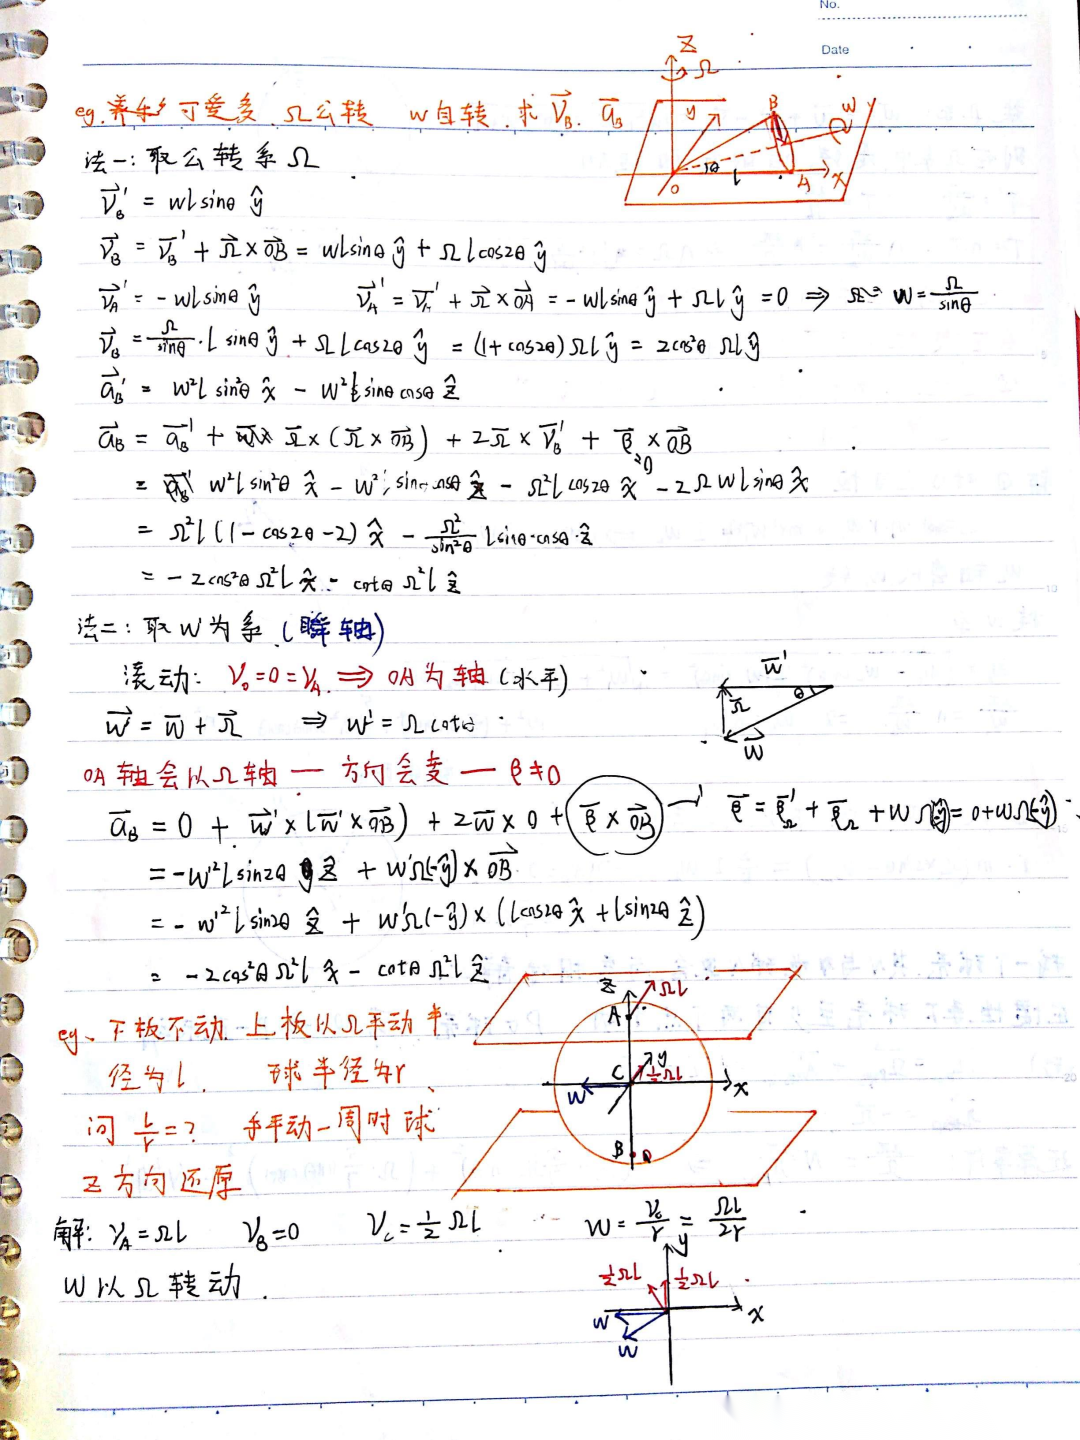 No.
Date
eg. 可爱多 Ω公转 w自转. 求 V⃗_B. a⃗_B
Z Ω y B w y O θ l A X
法一: 取公转系 Ω
V⃗_B' = wl sinθ ŷ
V⃗_B = V⃗_B' + Ω⃗ × OB⃗ = wl sinθ ŷ + Ω l cos2θ ŷ
V⃗_A' = - wl sinθ ŷ V⃗_A = V⃗_A' + Ω⃗ × OA⃗ = - wl sinθ ŷ + Ω l ŷ = 0 ⇒ w = Ω/sinθ
V⃗_B = Ω/sinθ · l sinθ ŷ + Ω l cos2θ ŷ = (1 + cos2θ) Ω l ŷ = 2cos²θ Ω l ŷ
a⃗_B' = w² l sin²θ x̂ - w² l sinθ cosθ ẑ
a⃗_B = a⃗_B' + Ω⃗ × (Ω⃗ × OB⃗) + 2Ω⃗ × V⃗_B' + β⃗ × OB⃗
=0
= w² l sin²θ x̂ - w² l sinθ cosθ ẑ - Ω² l cos2θ x̂ - 2Ω w l sinθ x̂
= Ω² l (1 - cos2θ - 2) x̂ - Ω²/sin²θ l sinθ · cosθ · ẑ
= - 2cos²θ Ω² l x̂ - cotθ Ω² l ẑ
法二: 取 w 为系 (瞬轴)
滚动: V_0 = 0 = V_A ⇒ OA为轴 (水平)
w⃗' = w⃗ + Ω⃗ ⇒ w' = Ω cotθ
w⃗' Ω⃗ θ w⃗
OA轴会以Ω轴 — 方向会变 — β ≠ 0
a⃗_B = 0 + w⃗' × (w⃗' × OB⃗) + 2w⃗ × 0 + β⃗ × OB⃗ β⃗ = β⃗'_Ω + β⃗_Ω + wΩ(-ŷ) = 0 + wΩ(-ŷ)
= - w'² l sin2θ ẑ + w'Ω(-ŷ) × OB⃗
= - w'² l sin2θ ẑ + w'Ω(-ŷ) × (l cos2θ x̂ + l sin2θ ẑ)
= - 2cos²θ Ω² l x̂ - cotθ Ω² l ẑ
eg、下板不动. 上板以Ω平动 半
径为 l. 球半径为 r、
问 l/r = ? 平动一周时球
Z方向还原
Z A Ωl C y ½Ωl w x B
解: V_A = Ωl V_B = 0 V_C = ½ Ωl w = V_C/r = Ωl/2r
w 以 Ω 转动.
y ½Ωl ½Ωl w x w